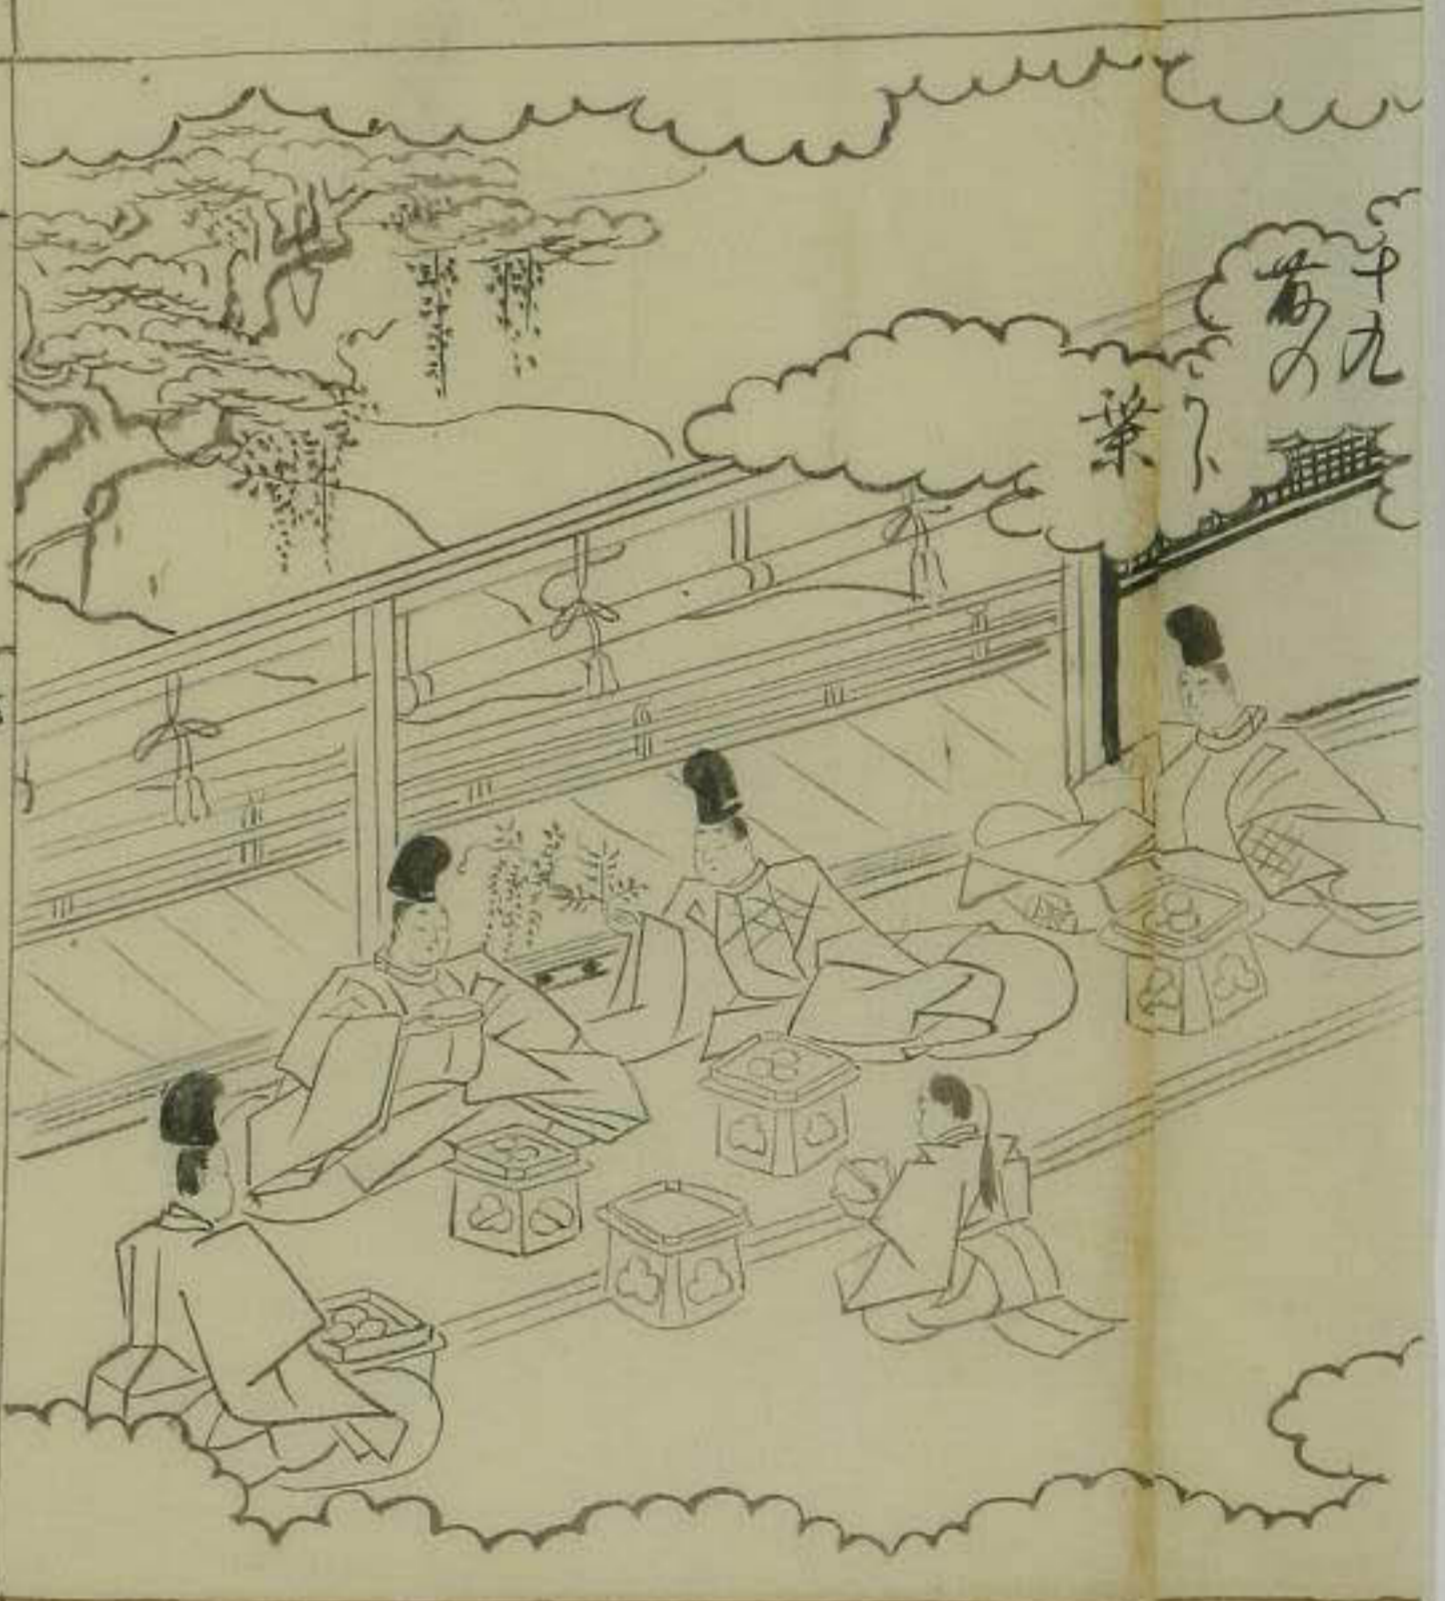 十九
藤の
うら
葉